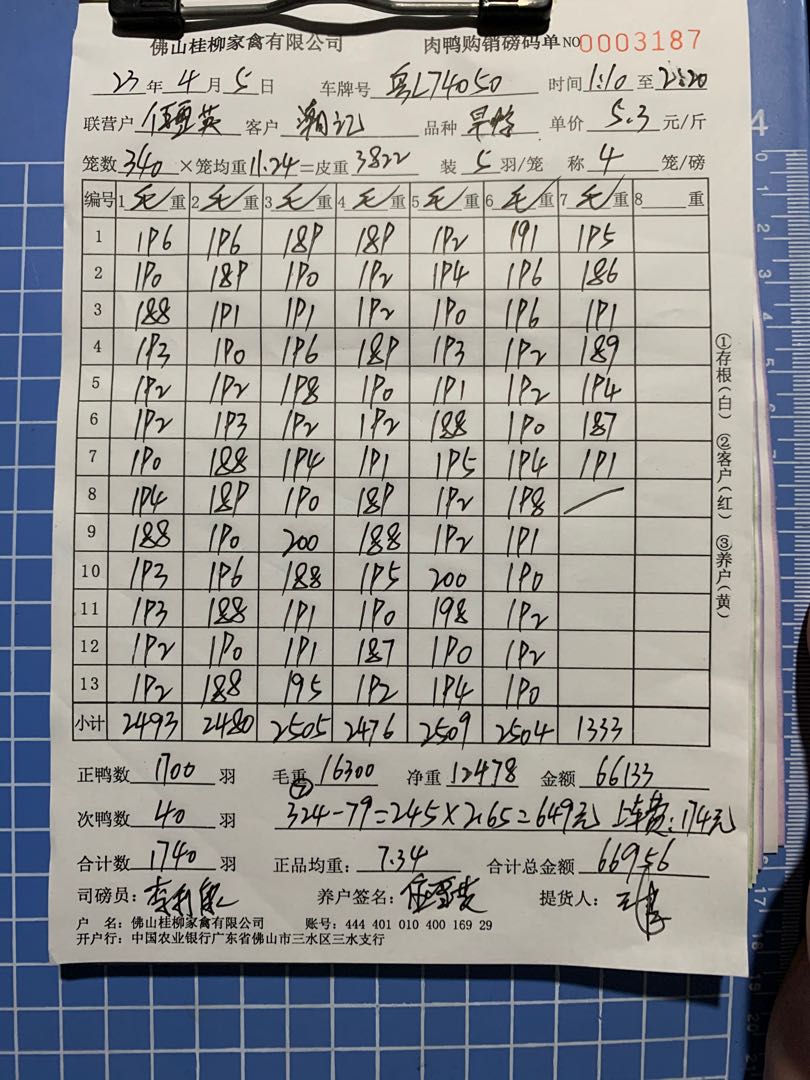 佛山桂柳家禽有限公司 肉鸭购销磅码单 NO 0003187
23 年 4 月 5 日 车牌号 粤L74050 时间 1:10 至 2:20
联营户 客户 潮记 品种 单价 5.3 元/斤
笼数 340 ×笼均重 11.24 =皮重 3822 装 5 羽/笼 称 4 笼/磅
编号 1 毛 重 2 毛 重 3 毛 重 4 毛 重 5 毛 重 6 毛 重 7 毛 重 8 重
1 196 196 189 189 192 191 195
2 190 189 190 192 194 196 186
3 188 191 191 192 190 196 191
4 193 190 196 189 193 192 189
5 192 192 198 190 191 192 194
6 192 193 192 192 188 190 187
7 190 188 194 191 195 194 191
8 194 189 190 189 192 198 /
9 188 190 200 188 192 191
10 193 196 188 195 200 190
11 193 188 191 190 198 192
12 192 190 191 187 190 192
13 192 188 195 192 194 190
小计 2493 2480 2505 2476 2509 2504 1333
①存根(白) ②客户(红) ③养户(黄)
正鸭数 1700 羽 毛重 16300 净重 12478 金额 66133
次鸭数 40 羽 ⑤ 324-79=245×2.65=649元 上车费:174元
合计数 1740 羽 正品均重: 7.34 合计总金额 66956
司磅员: 养户签名: 提货人:
户 名: 佛山桂柳家禽有限公司 账号: 444 401 010 400 169 29
开户行: 中国农业银行广东省佛山市三水区三水支行